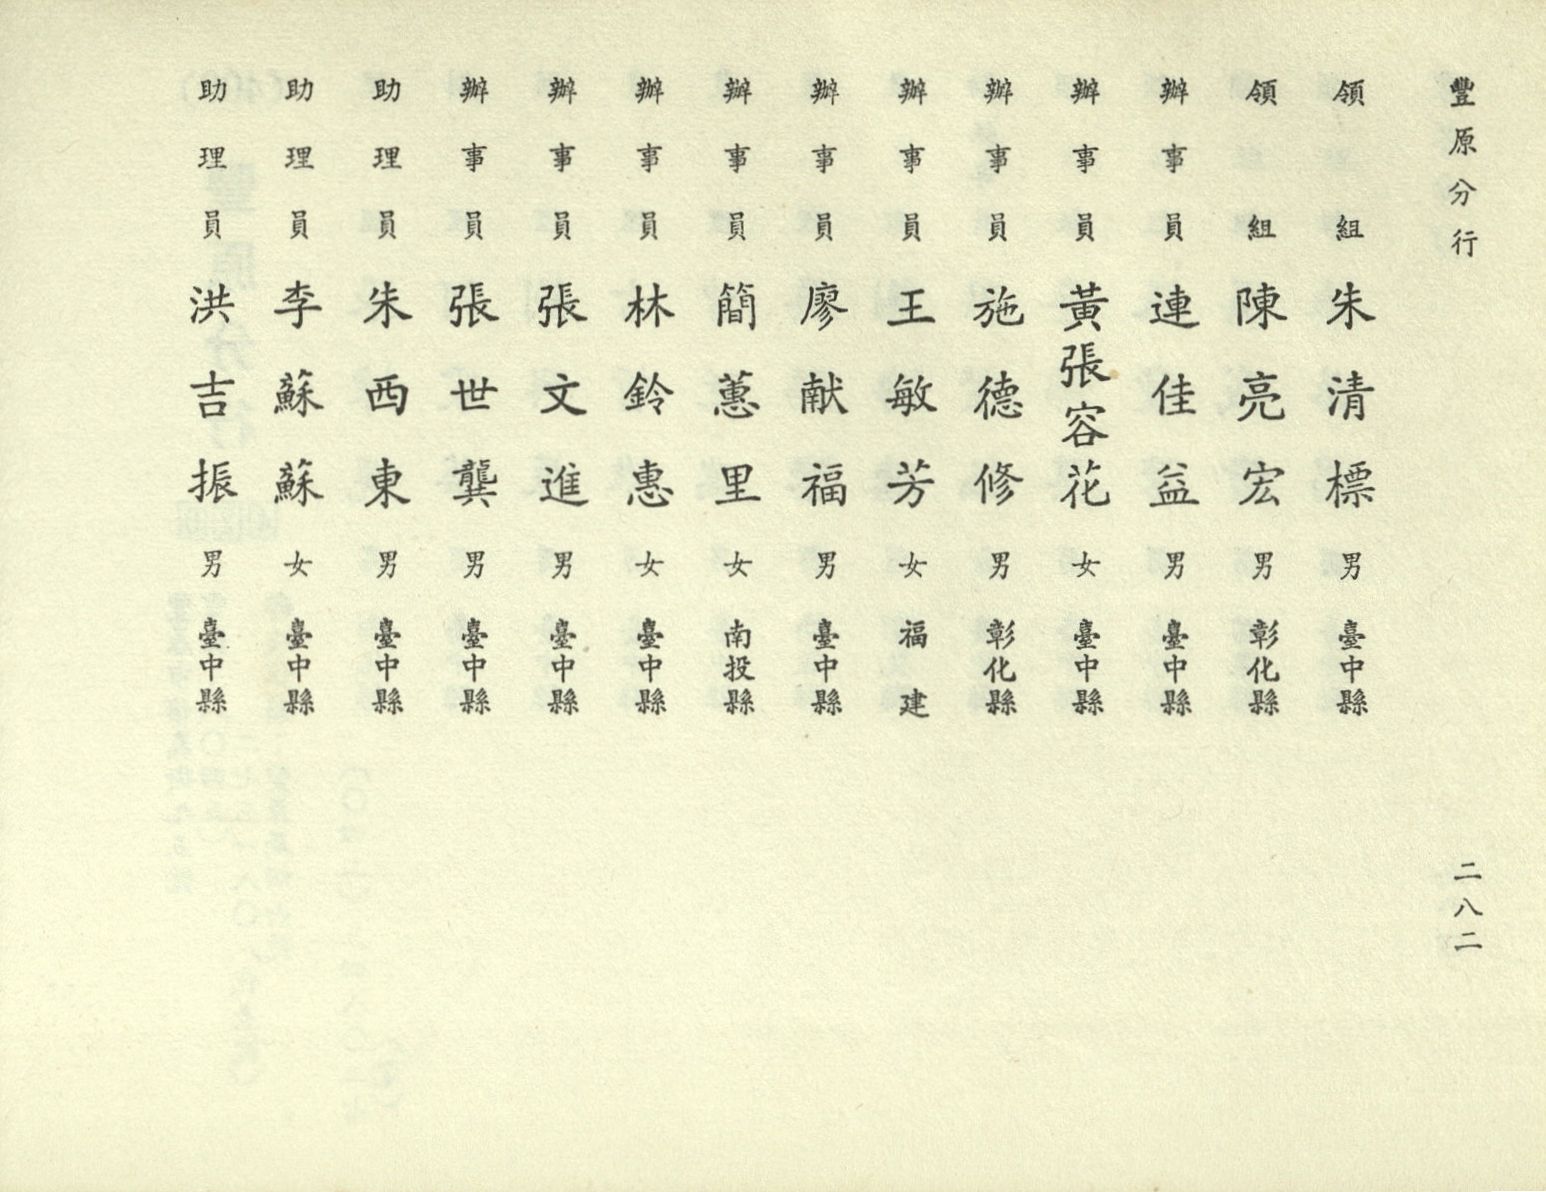 豐原分行
二八二
領組 朱清標 男 臺中縣
領組 陳亮宏 男 彰化縣
辦事員 連佳益 男 臺中縣
辦事員 黃張容花 女 臺中縣
辦事員 施德修 男 彰化縣
辦事員 王敏芳 女 福建
辦事員 廖献福 男 臺中縣
辦事員 簡蕙里 女 南投縣
辦事員 林鈴惠 女 臺中縣
辦事員 張文進 男 臺中縣
辦事員 張世龔 男 臺中縣
助理員 朱西東 男 臺中縣
助理員 李蘇蘇 女 臺中縣
助理員 洪吉振 男 臺中縣